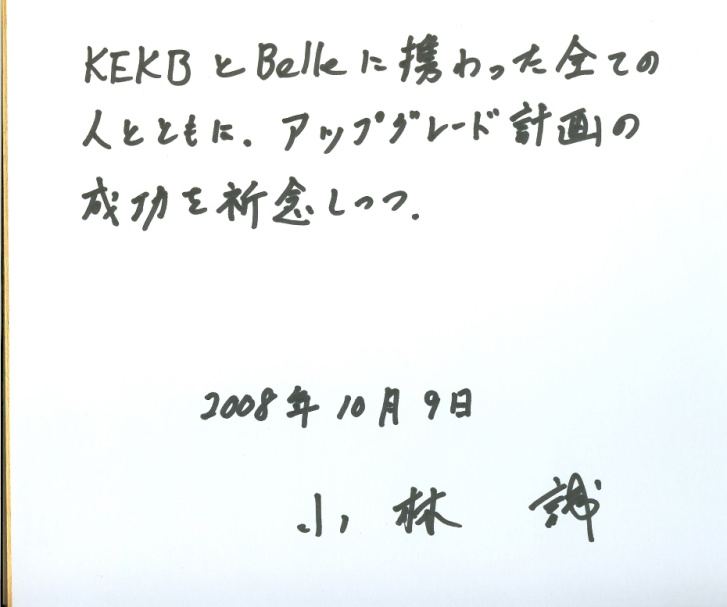 KEKBとBelleに携わった全ての
人とともに. アップグレード計画の
成功を祈念しつつ.
2008年10月9日
小林 誠